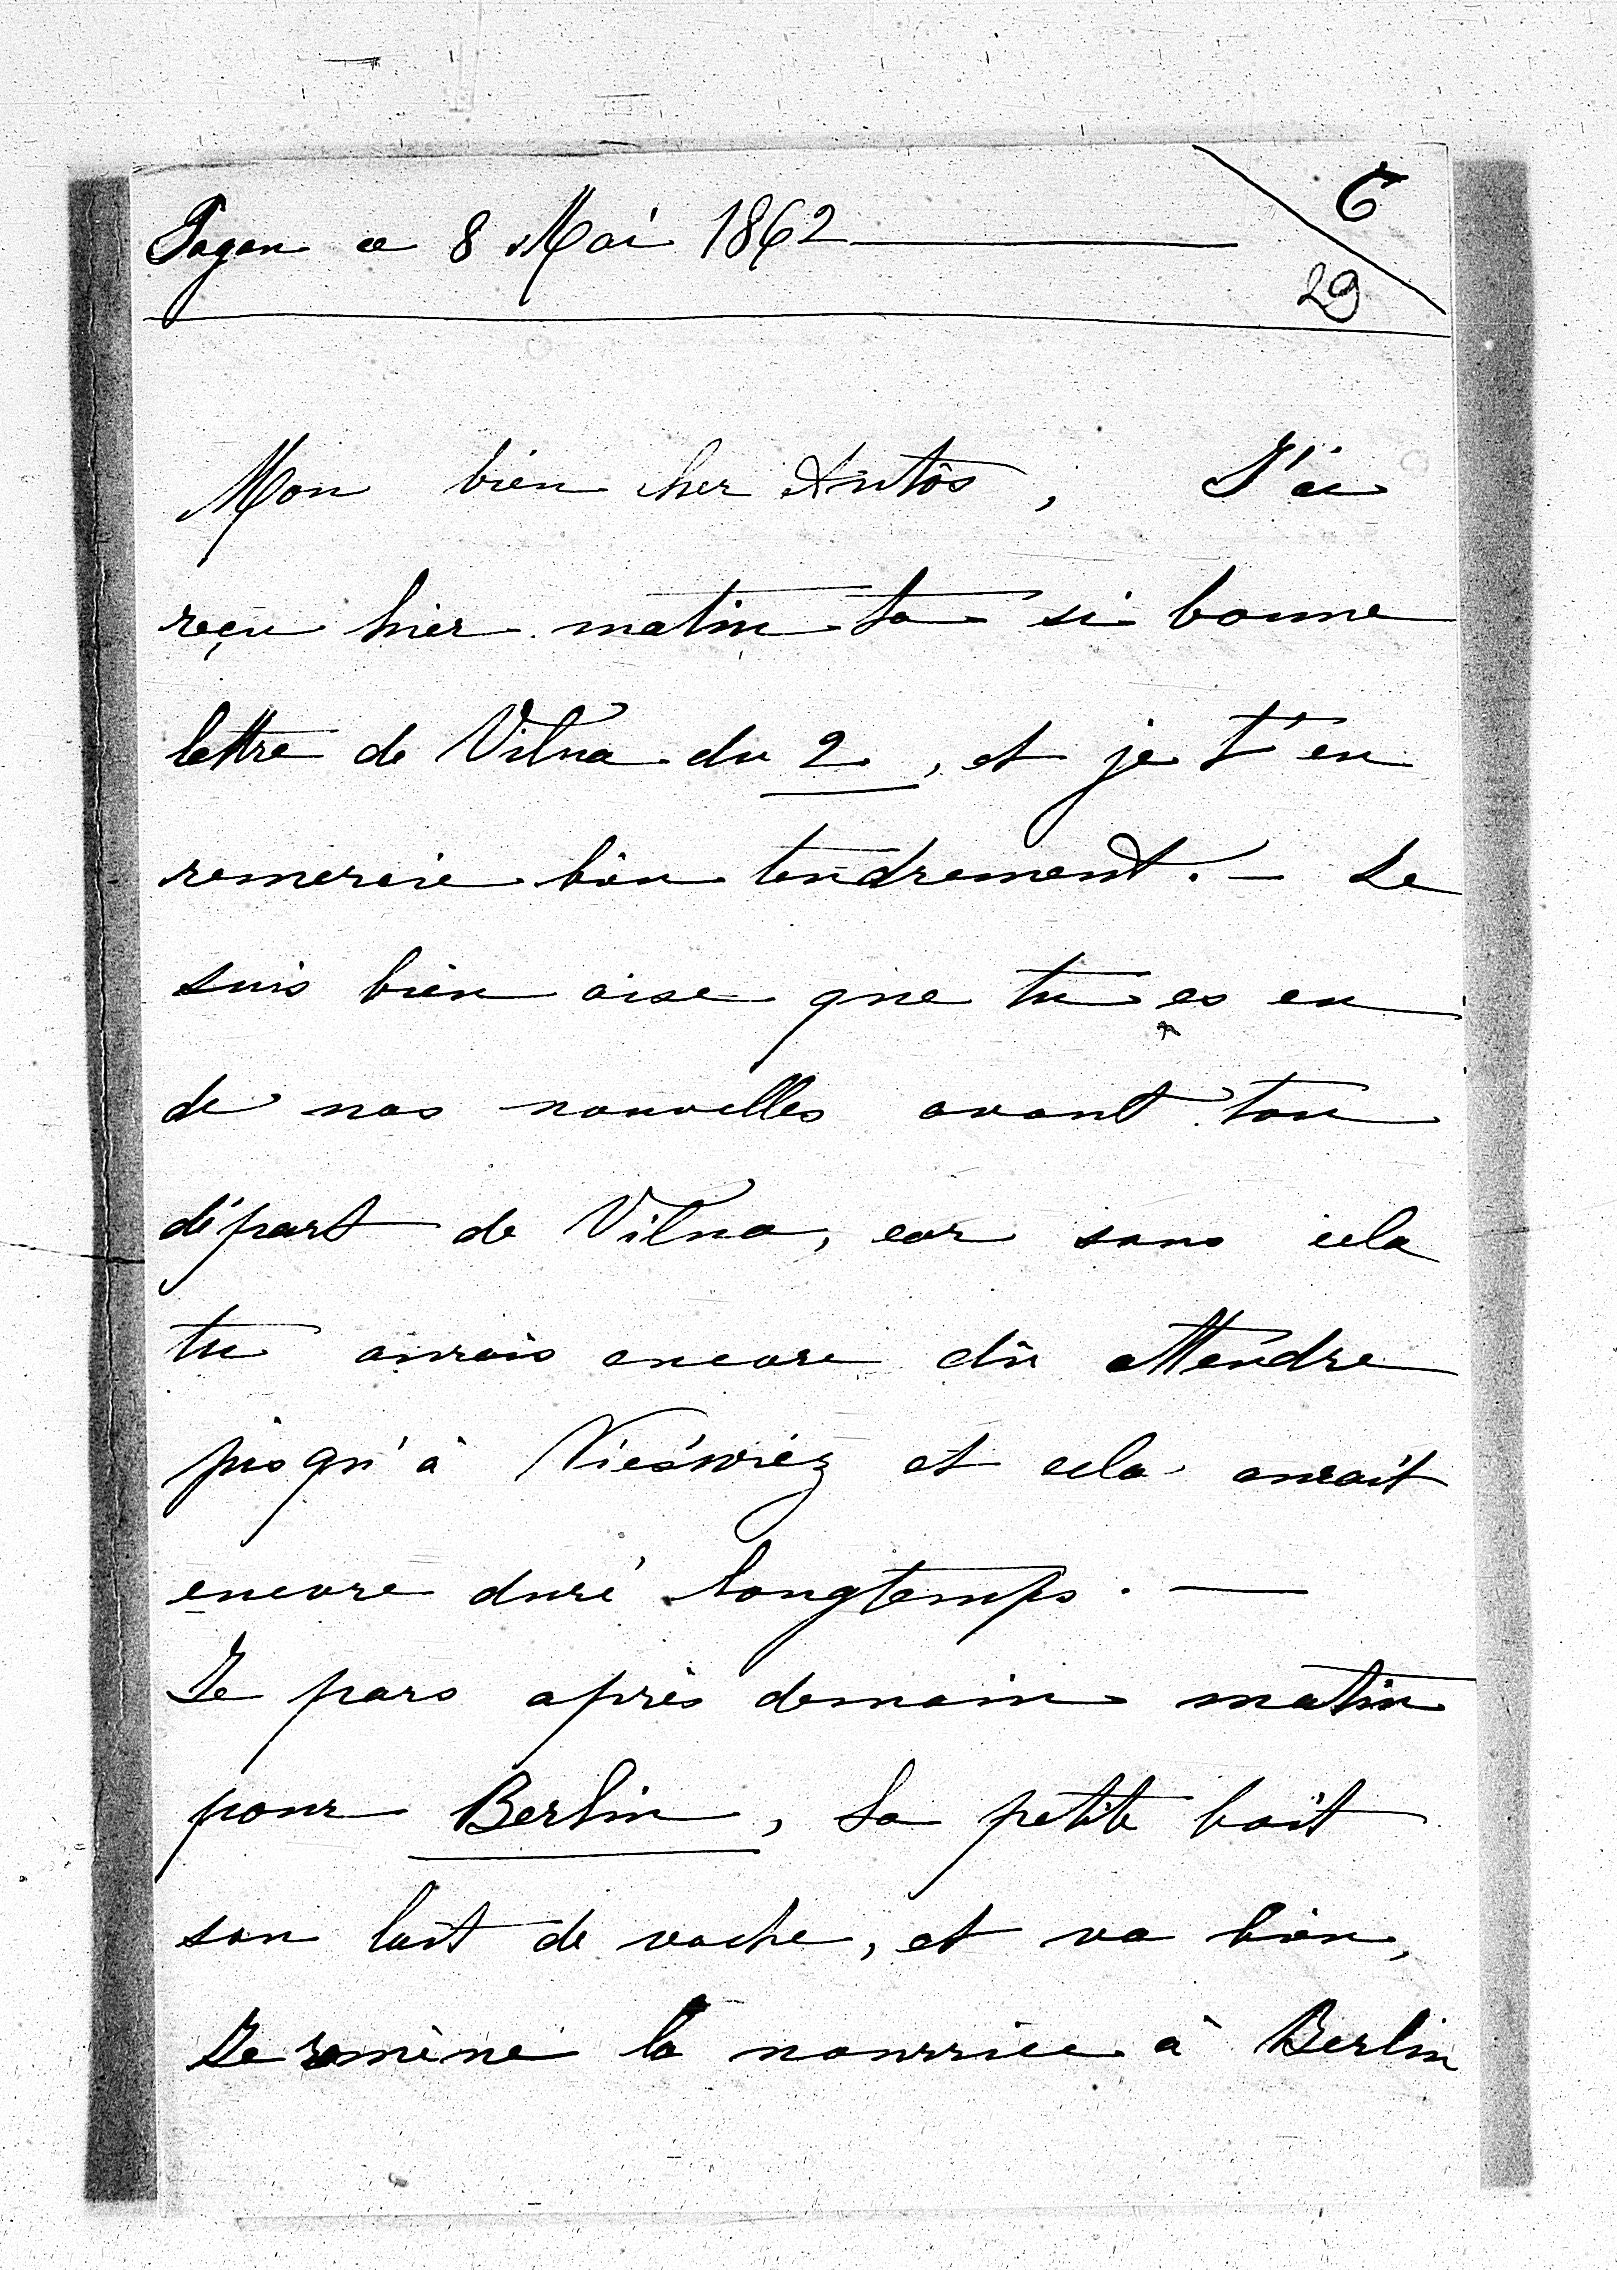 Sagan ce 8 Mai 1862
6
29
Mon bien cher Antôs, J'ai
reçu hier matin ta si bonne
lettre de Vilna du 2, et je t'en
remercie bien tendrement. — Je
suis bien aise que tu es eu
de nos nouvelles avant ton
départ de Vilna, car sans cela
tu aurais encore dû attendre
jusqu'à Nieświez et cela aurait
encore duré longtemps. —
Je pars après demain matin
pour Berlin, la petite boit
son lait de vache, et va bien,
Je ramène la nourrice à Berlin